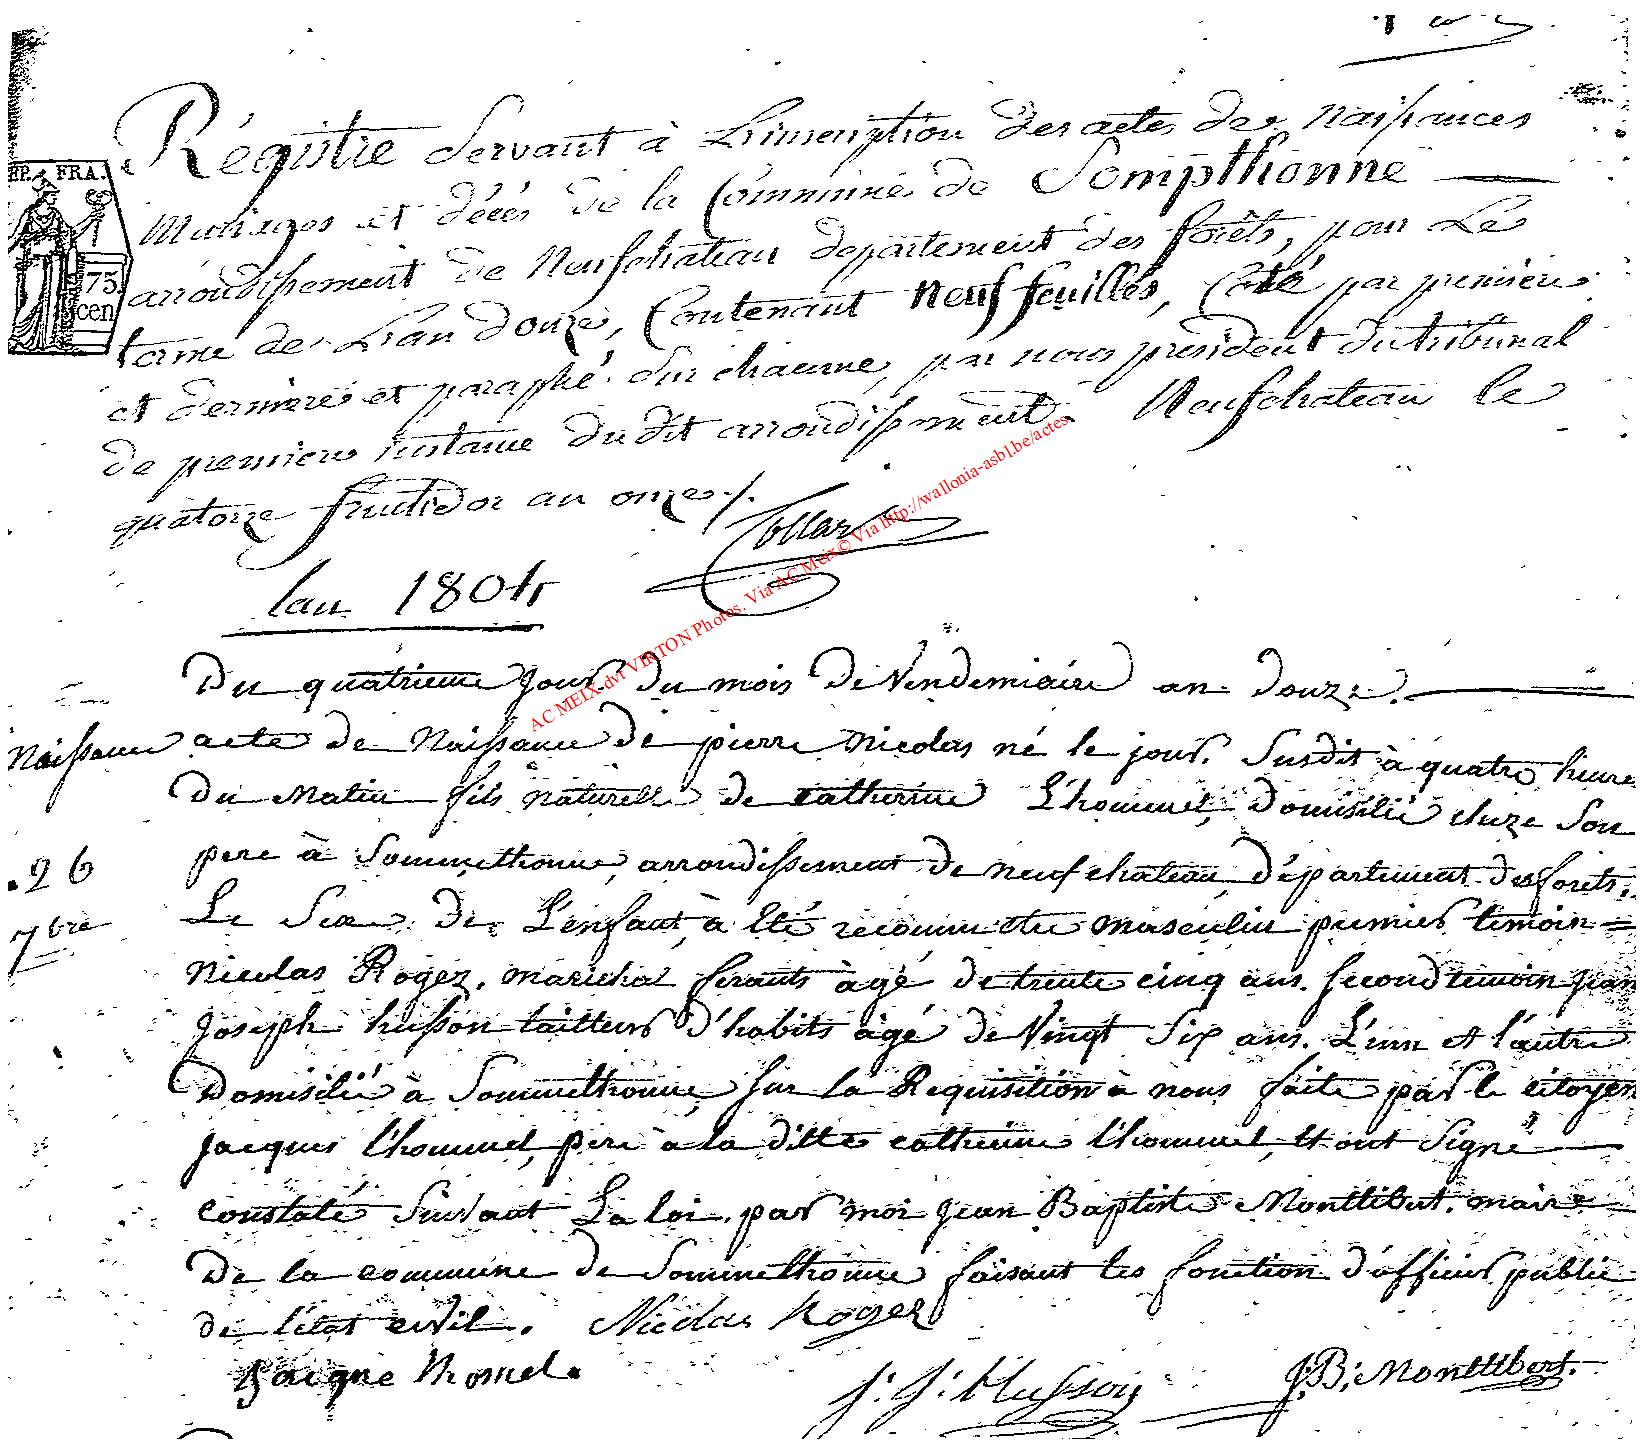 Régistre Servant à L'inscription des actes de Naissances
Mariages et décès de la Commune de Sompthonne
arrondissement de Neufchateau departement des forêts, pour Le
terme de L'an douze, Contenant Neuf feuilles, Coté par premiere
et derniere et paraphé sur chacune, par nous president du tribunal
de premiere instance du dit arrondissement. Neufchateau le
quatorze fructidor an onze ./.
Collar
REP. FRA.
75
cen
lan 1804
AC MEIX-dvt VIRTON Photos. Via AC Meix© Via http://wallonia-asbl.be/actes
Du quatrieme jour du mois de Vendemiaire an douze.
Naissance
acte de Naissance de pierre Nicolas né le jour. Susdit à quatre heure
Du Matin fils naturelle de catherine L'hommel, Domisilié cheze Son
pere à Sommethonne, arrondissement de neufchateau, département des forets.
.26
7bre
Le Sex de L'enfant, à été reconnu etre masculin premier temoin
Nicolas Roger. marichal ferants âgé de trente cinq ans. Second temoin jean
Joseph husson tailleur d'habits âgé de Vingt Six ans. L'inn et l'autre
Domisilié à Sommethonne, sur la Requisition à nous faite par le citoyen
jacques l'hommel, pere à la ditte catherine l'hommel, et ont Signé
Constaté Suivant La loi. par moi jean Baptiste Monttibert. maire
De la commune de Sommethonne faisant les fonction d'officier public
de l'état civil. Nicolas Roger
Jaique Thomel.
J: J: Husson
J: B: Monttibert.